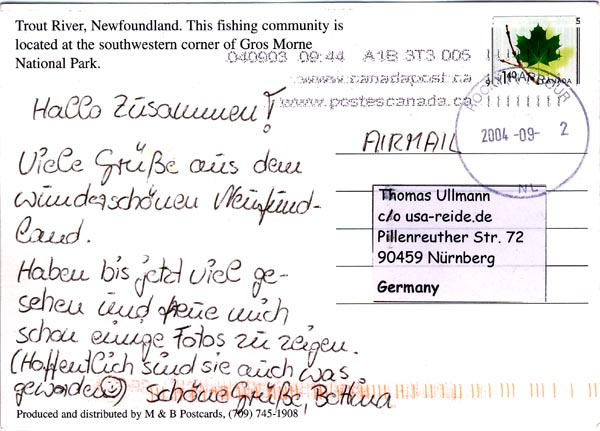 Trout River, Newfoundland. This fishing community is
located at the southwestern corner of Gros Morne
National Park.
040903 09:44 A1B 3T3 005
www.canadapost.ca
www.postescanada.ca
5
1.40
CANADA
HARBOUR
2004 -09- 2
NL
Hallo Zusammen!
AIRMAIL
Viele Grüße aus dem
wunderschönen Neufund-
land.
Haben bis jetzt viel ge-
sehen und freue mich
schon einige Fotos zu zeigen.
(Hoffentlich sind sie auch was
geworden ☺) Schöne Grüße, Bettina
Thomas Ullmann
c/o usa-reide.de
Pillenreuther Str. 72
90459 Nürnberg
Germany
Produced and distributed by M & B Postcards, (709) 745-1908